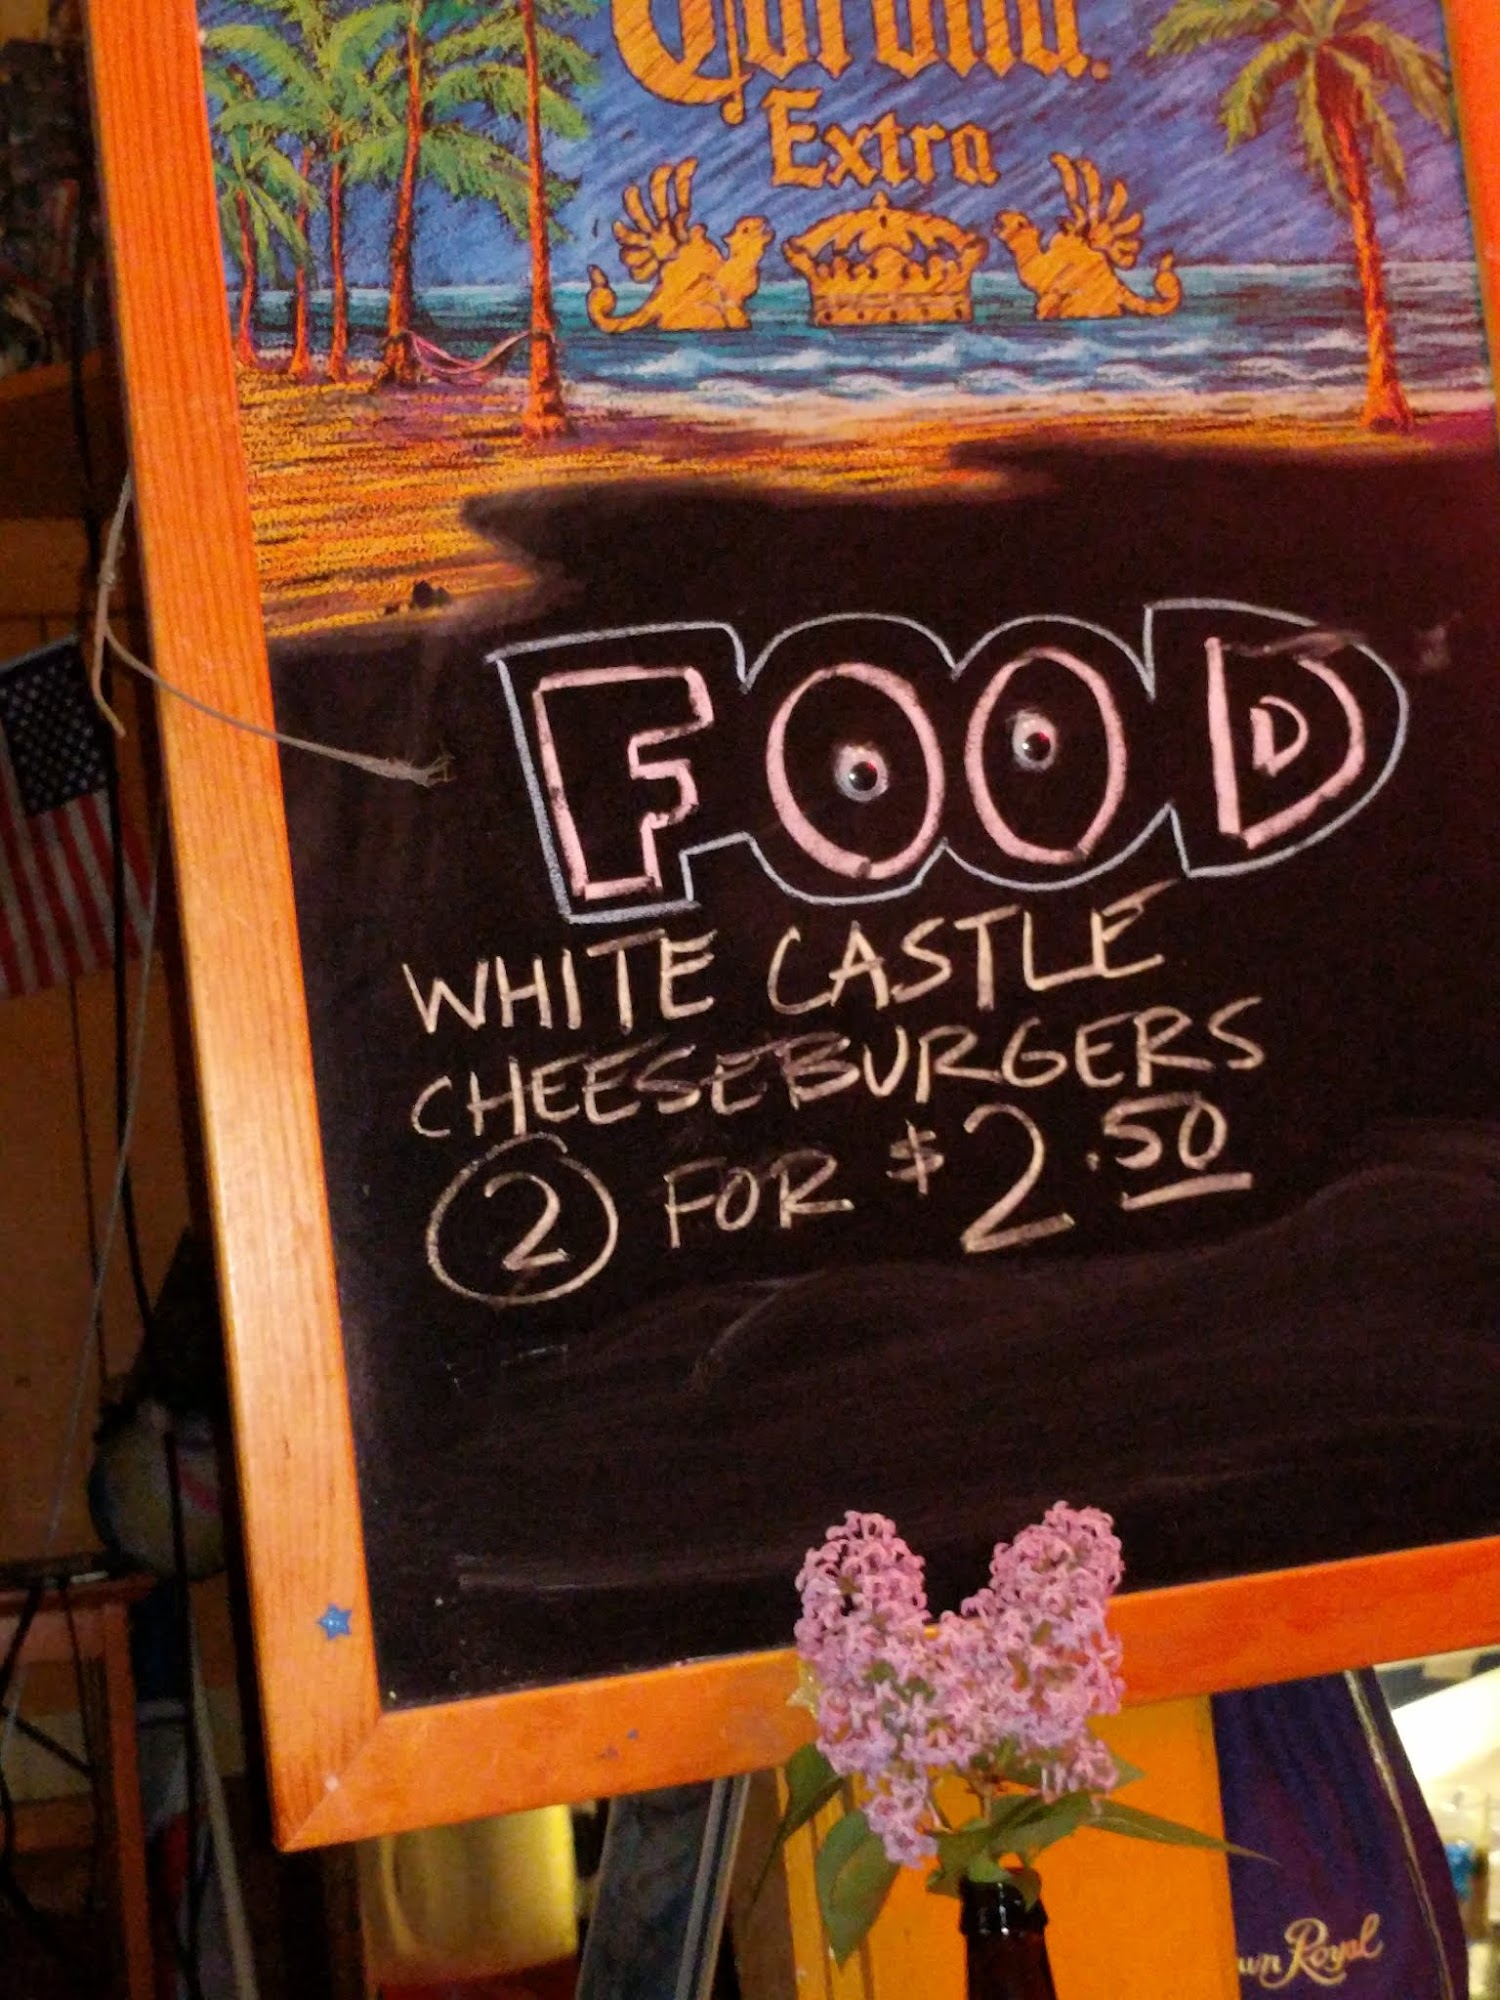 Corona.
Extra
FOOD
WHITE CASTLE
CHEESEBURGERS
2 FOR $2.50
Royal